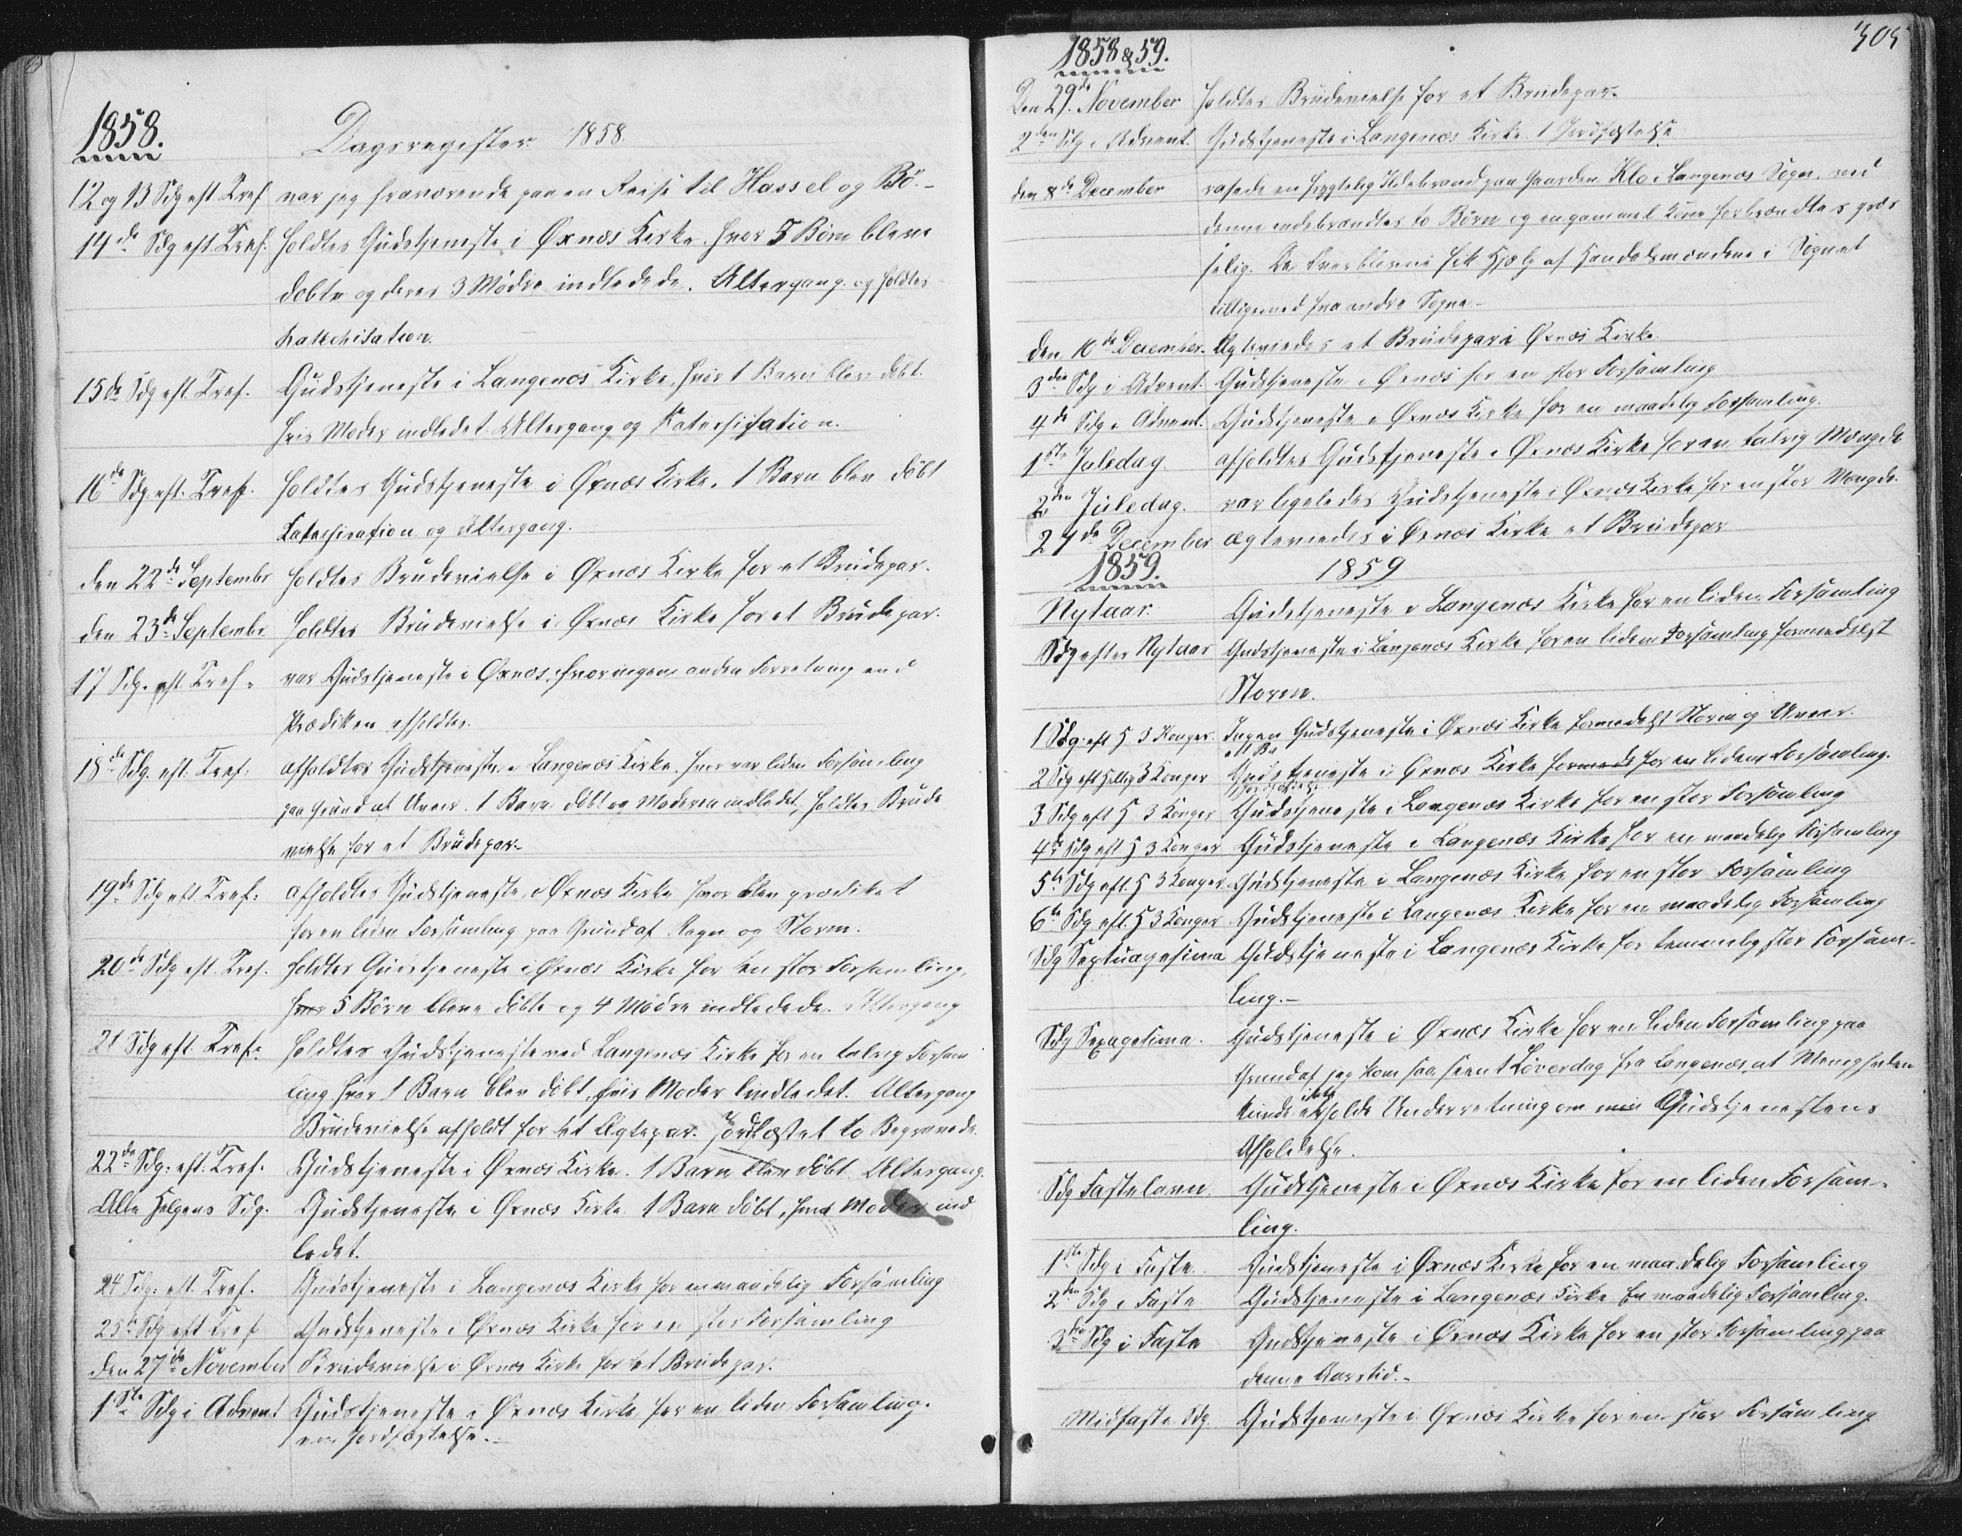 1858.
Dagsregister 1858.
12 og 13 Sdg eft Tref var jeg fraværende paa en Reise til Hassel og Bö.-
14de Sdg eft. Tref. holdtes Gudstjeneste i Øxnæs Kirke, hvor 5 Børn bleve
döbte og deres 3 Mødre indledede. Altergang. og holdtes
Katechisation.
15de Sdg eft Tref. Gudstjeneste i Langenæs Kirke, hvor 1 Barn blev döbt.
hvis Moder indledet. Altergang og Katechisation.
16de Sdg eft. Tref. holdtes Gudstjeneste i Øxnæs Kirke. 1 Barn blev döbt
Katechisation og Altergang.
den 22de September holdtes Brudevielse i Øxnæs Kirke for et Brudepar.
den 23de September holdtes Brudevielse i Øxnæs Kirke for et Brudepar.
17 Sdg. eft. Tref. var Gudstjeneste i Øxnæs, hvor ingen anden Forretning end
Prædiken afholdtes.
18de Sdg. eft. Tref. afholdtes Gudstjeneste i Langenæs Kirke, hvor var liden Forsamling
paa Grund af Uveir. 1 Barn döbt og Moderen indledet, holdtes Brude
vielse for et Brudepar.-
19de Sdg eft. Tref. afholdtes Gudstjeneste i Øxnæs Kirke hvor blev prædiket
for en liden Forsamling paa Grund af Regn og Storm.
20de Sdg eft. Tref. holdtes Gudstjeneste i Øxnæs Kirke for en stor Forsamling,
hvor 5 Børn bleve döbte og 4 Mødre indledede. Altergang
21 Sdg eft. Tref. holdtes Gudstjeneste ved Langenæs Kirke for en talrig Forsam
ling hvor 1 Barn blev döbt, hvis Moder indledet. Altergang
Brudevielse afholdt for et Ægtepar. Jordfæstet to Begravede.
22de Sdg. eft. Tref. Gudstjeneste i Øxnæs Kirke. 1 Barn blev döbt. Altergang.
Alle Helgens Sdg. Gudstjeneste i Øxnæs Kirke 1 Barn döbt, hvis Moder ind
ledet.
24 Sdg. eft. Tref. Gudstjeneste i Langenæs Kirke for en maadelig Forsamling
25de Sdg eft Tref Gudstjeneste i Øxnæs Kirke for en stor Forsamling
den 27de November Brudevielse i Øxnæs Kirke for et Brudepar.
1ste Sdg i Advent Gudstjeneste i Øxnæs Kirke for en liden Forsamling.
en Jordfæstelse.-
305
1858 & 59.
Den 29de November holdtes Brudevielse for et Brudepar.
2den Sdg i Advent. Gudstjeneste i Langenæs Kirke. 1 Jordfæstelse
den 8de December rasede en frygtelig Ildebrand paa Gaarden Klo i Langenæs Sogn, ved
denne indebrændtes to Børn og en gammel Kone forbrændtes græs
selig. De fik Hjælp af Handelsmændene i Sognet
tilligemed fra andre Sogne.-
den 10de December. Ægteviedes et Brudepar i Øxnæs Kirke.
3die Sdg i Advent. Gudstjeneste i Øxnæs for en stor Forsamling
4de Sdg i Advent. Gudstjeneste i Øxnæs Kirke for en maadelig Forsamling.
1ste Juledag. afholdtes Gudstjeneste i Øxnæs Kirke for en talrig Mængde
2den Juledag. var ligeledes Gudstjeneste i Øxnæs Kirke for en stor Mængde.
27de December ægteviedes i Øxnæs Kirke et Brudepar
1859. 1859
Nytaar. Gudstjeneste i Langenæs Kirke for en liden Forsamling
Sdg efter Nytaar Gudstjeneste i Langenæs Kirke for en liden Forsamling formedelst
Storm.
1 Sdg. eft H 3 Konger. Ingen Gudstjeneste i Øxnæs Kirke formedelst Storm og Uveir.
2 Sdg eft Hellig 3 Konger Gudstjeneste i Øxnæs Kirke formed for en liden Forsamling.
3 Sdg eft H 3 Konger Gudstjeneste i Langenæs Kirke for en stor Forsamling
4de Sdg eft H 3 Konger Gudstjeneste i Langenæs Kirke for en maadelig Forsamling
5te Sdg eft. H 3 Konger Gudstjeneste i Langenæs Kirke for en stor Forsamling
6te Sdg eft. H 3 Konger Gudstjeneste i Langenæs Kirke for en maadelig Forsamling
Sdg Septuagesima Gudstjeneste i Langenæs Kirke for temmelig stor Forsam-
ling.-
Sdg Sexagesima. Gudstjeneste i Øxnæs Kirke for en liden Forsamling paa
Grund af jeg kom saa seent Løverdag fra Langenæs, at Menigheden
kunde ikke holde Underretning om min Gudstjenestens
Afholdelse.
Sdg Fastelavn. Gudstjeneste i Øxnæs Kirke for en liden Forsam-
ling.
1ste Sdg i Faste. Gudstjeneste i Øxnæs Kirke for en maadelig Forsamling
2den Sdg i Faste Gudstjeneste i Langenæs Kirke En maadelig Forsamling.
3die Sdg i Faste Gudstjeneste i Øxnæs Kirke for en stor Forsamling paa
denne Aarstid.-
Midfaste Sdg. Gudstjeneste i Øxnæs Kirke for en stor Forsamling